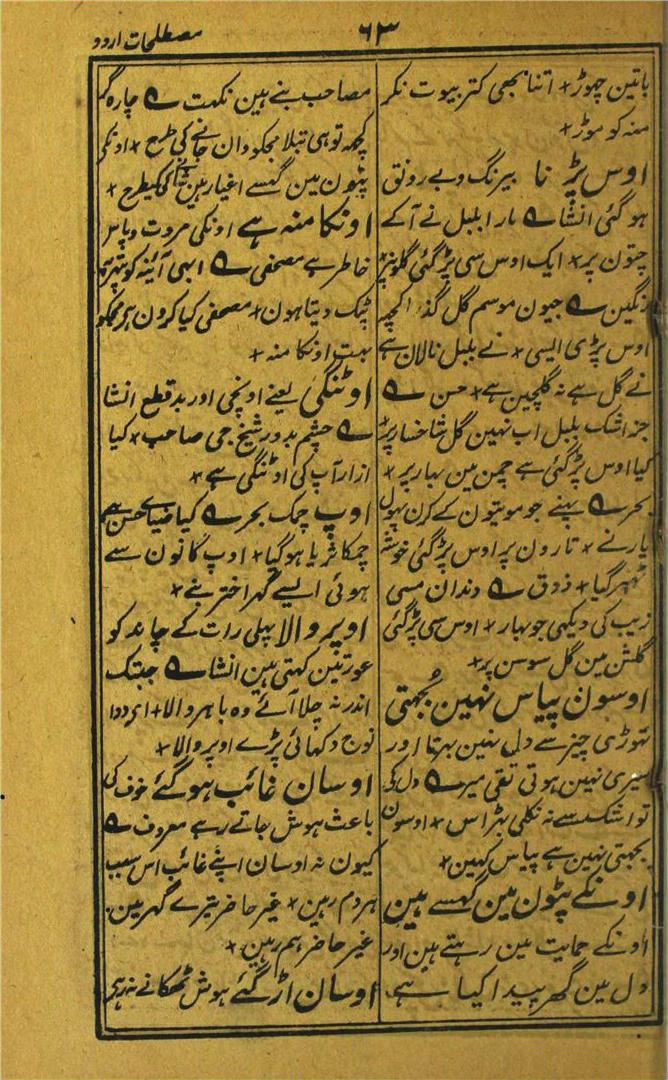 مصطلحات اردو
۶۳
باتین چھوڑ × اتنا بھی کتر بیوت نکر
منہ کو موڑ ×
اوس پڑنا بیرنگ و بے رونق
ہو گئی انشا ے بارا بلبل نے آکے
چتون پر × ایک اوس سی پڑ گئی گلونپر
رنگین ے جیون موسم گل گذر اکچھہ
اوس پڑی ایسی × نے بلبل نالان ہے
نے گل ہے نہ گلچین ہے × حسن ے
جز اشک بلبل اب نہین گل شاخسار پر ×
کیا اوس پڑ گئی ہے چمن مین بہار پر ×
بحر ے پہنے جو موتیون کے کرن پھول
یار نے × تارون پر اوس پڑ گئی خوشہ
ٹھہر گیا × ذوق ے دندان مسی
زیب کی دیکھی جو بہار × اوس سی پڑ گئی
گلشن مین گل سوسن پر ×
اوسون پیاس نہین بُجھتی
تھوڑی چیز سے دل نہین بھرتا اور
سیری نہین ہوتی تقی میر ے دل کی
تو اشک سے نہ نکلی بھڑاس × اوسون
بجھتی نہین ہے پیاس کہین ×
اونکے پٹون مین گھسے ہین
اونکے حمایت مین رہتے ہین اور
دل مین گھر پیدا کیا ہے
مصاحب بنے ہین نکہت ے چارہ گر
کچھہ تو ہی بتلا مجکو وان جانے کی طرح × اونکے
پٹون مین گھسے اغیار ہین کیطرح ×
اونکا منہ ہے اونکی مروت و پاس
خاطر ہے مصحفی ے ابھی آئینہ کو پتھر پہ
پٹک دیتا ہون × مصحفی کیا کرون ہر مجکو
بہت اونکا منہ ×
اوٹنگی یعنے اونچی اور بد قطع انشا
ے چشم بد دور شیخ جی صاحب × کیا
ازار آپ کی اوٹنگی ہے ×
اوپ چمک بحر ے کیا ضیاے حسن ہے
چمکا ثریا ہو گیا × اوپ گانون سے
ہوئی ایسے گہر اختر بنے ×
اوپر والا پہلی رات کے چاند کو
عورتین کہتی ہین انشا ے جبتک
اندر نہ چلا آئے وہ باہر والا × ای ددا
نوج دکھائی پڑے اوپر والا ×
اوسان غائب ہو گئے خوف کی
باعث ہوش جاتے رہے معروف ے
کیون نہ اوسان اپنے غائب اس سبب
ہردم رہین × غیر حاضر تیرے گھر مین
غیر حاضر ہم رہین ×
اوسان اڑ گئے ہوش ٹھکانے نہ رہی